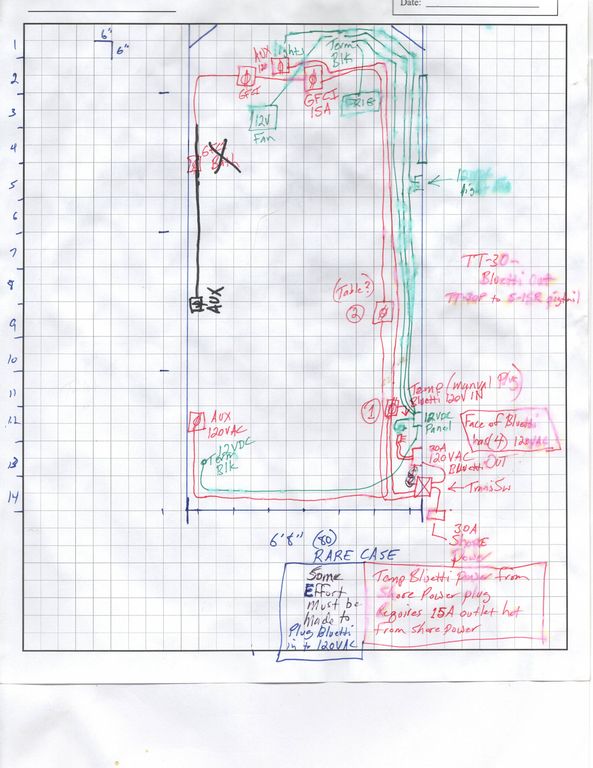 Date:
6"
6"
1
2
3
4
5
6
7
8
9
10
11
12
13
14
AUX
120
Lights
Term
Blk
GFCI
GFCI
15A
12V
Fan
FRIG
AUX
TT-30-
Bluetti Out
TT-30P to 5-15R pigtail
(Table?)
2
1
Temp (manual Plug)
Bluetti 120V IN
12VDC
Panel
AUX
120VAC
12VDC
Term
Blk
Face of Bluetti
had (4) 120VAC
30A
120VAC
Bluetti OUT
Trans Sw
30A
Shore
Power
6'8" (80)
RARE CASE
Some
Effort
Must be
made to
Plug Bluetti
in to 120VAC
Temp Bluetti power from
Shore Power plug
Requires 15A outlet hot
from shore power